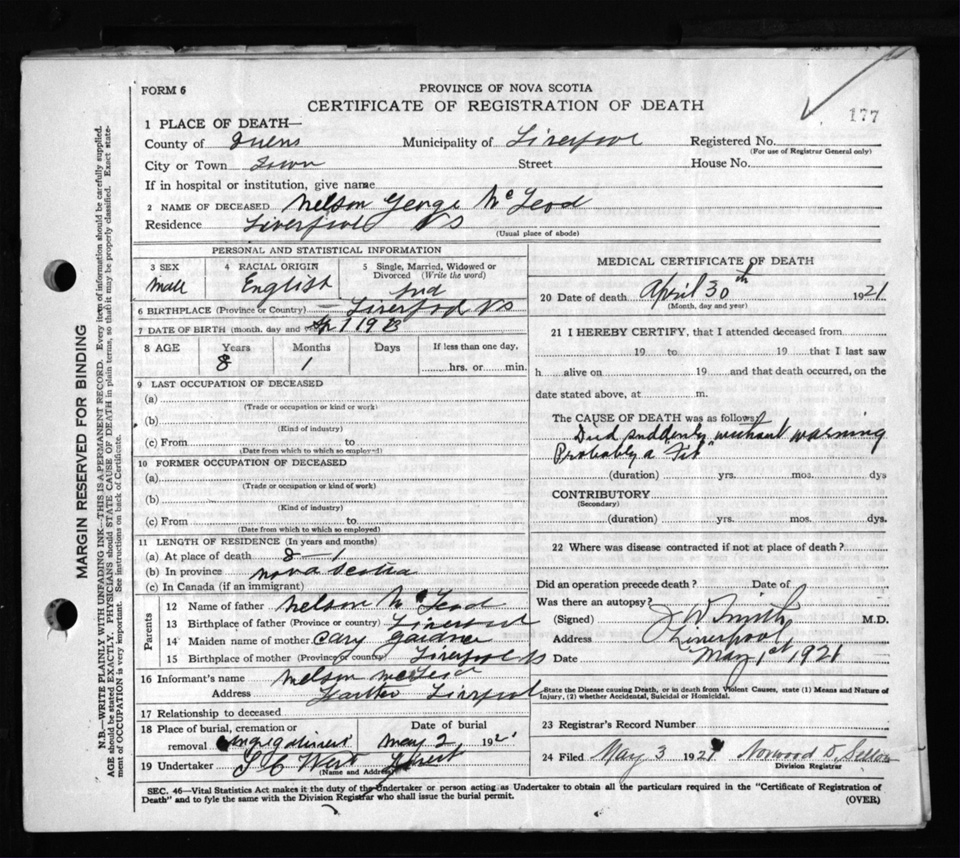 177
FORM 6
PROVINCE OF NOVA SCOTIA
CERTIFICATE OF REGISTRATION OF DEATH
MARGIN RESERVED FOR BINDING
N.B.—WRITE PLAINLY WITH UNFADING INK—THIS IS A PERMANENT RECORD. Every item of information should be carefully supplied.
AGE should be stated EXACTLY. PHYSICIANS should STATE CAUSE OF DEATH in plain terms, so that it may be properly classified. Exact state-
ment of OCCUPATION is very important. See instructions on back of Certificate.
1 PLACE OF DEATH—
County of Quens Municipality of Liverpool Registered No.
(For use of Registrar General only)
City or Town Town Street House No.
If in hospital or institution, give name
2 NAME OF DECEASED Nelson George McLeod
Residence Liverpool NS
(Usual place of abode)
PERSONAL AND STATISTICAL INFORMATION
3 SEX 4 RACIAL ORIGIN 5 Single, Married, Widowed or
Divorced (Write the word)
Male English
6 BIRTHPLACE (Province or Country) Liverpool NS
7 DATE OF BIRTH (month, day and
8 AGE Years Months Days If less than one day,
8 1 hrs. or min.
9 LAST OCCUPATION OF DECEASED
(a)
(Trade or occupation or kind or work)
(b)
(Kind of industry)
(c) From to
(Date from which to which so employed)
10 FORMER OCCUPATION OF DECEASED
(a)
(Trade or occupation or kind of work)
(b)
(Kind of industry)
(c) From to
(Date from which to which so employed)
11 LENGTH OF RESIDENCE (In years and months)
(a) At place of death 8—1
(b) In province Nova Scotia
(c) In Canada (if an immigrant)
Parents
12 Name of father Nelson McLeod
13 Birthplace of father (Province or country) Liverpool
14 Maiden name of mother
15 Birthplace of mother (Province or country) Liverpool NS
16 Informant's name Nelson McLeod
Address Liverpool
17 Relationship to deceased
18 Place of burial, cremation or Date of burial
removal May 2 192
19 Undertaker West
(Name and Address)
MEDICAL CERTIFICATE OF DEATH
20 Date of death April 30th 1921
(Month, day and year)
21 I HEREBY CERTIFY, that I attended deceased from
19 to 19 that I last saw
h alive on 19 and that death occurred, on the
date stated above, at m.
The CAUSE OF DEATH was as follows:
Died suddenly without warning
Probably a "Fit"
(duration) yrs. mos. dys
CONTRIBUTORY
(Secondary)
(duration) yrs. mos. dys.
22 Where was disease contracted if not at place of death?
Did an operation precede death? Date of
Was there an autopsy?
(Signed) J W Smith M.D.
Address Liverpool
Date May 1st 1921
State the Disease causing Death, or in death from Violent Causes, state (1) Means and Nature of
Injury, (2) whether Accidental, Suicidal or Homicidal.
23 Registrar's Record Number
24 Filed May 3 1921 Norwood
Division Registrar
SEC. 46—Vital Statistics Act makes it the duty of the Undertaker or person acting as Undertaker to obtain all the particulars required in the "Certificate of Registration of
Death" and to fyle the same with the Division Registrar who shall issue the burial permit.
(OVER)